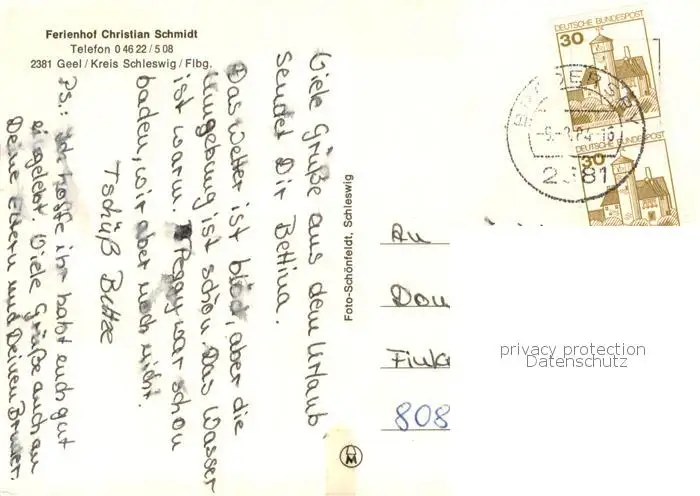 Ferienhof Christian Schmidt
Telefon 0 46 22 / 5 08
2381 Geel / Kreis Schleswig / Flbg.
Viele Grüße aus dem Urlaub
sendet Dir Bettina.
Das Wetter ist blöd, aber die
Umgebung ist schön. Das Wasser
ist warm. Peggy war schon
baden, wir aber noch nicht.
Tschüß
Ps.: Ich hoffe ihr habt euch gut
eingelebt. Viele Grüße auch an
Deine Eltern und Deinen Bruder.
Foto-Schönfeldt, Schleswig
M
DEUTSCHE BUNDESPOST
30
DEUTSCHE BUNDESPOST
30
2381
An
Don
Fink
808
privacy protection
Datenschutz